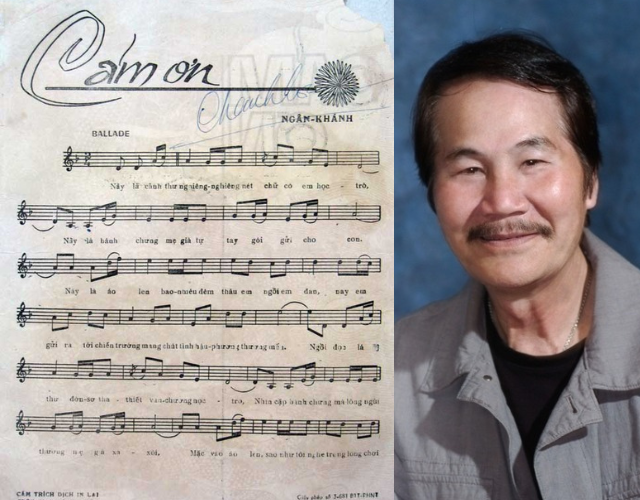 Cám ơn
NGÂN-KHÁNH
BALLADE
Này là cánh thư nghiêng-nghiêng nét chữ cô em học - trò,
Này là bánh chưng mẹ già tự tay gói gửi cho con.
Này là áo len bao-nhiêu đêm thâu em ngồi em đan, nay em
gửi ra tới chiến trường mang chút tình hậu-phương thương mến. Ngồi đọc lá
thư đơn-sơ tha - thiết văn-chương học - trò, Nhìn cặp bánh chưng mà lòng nghĩ
thương mẹ già xa - xôi. Mặc vào áo len, sao như tôi nghe trong lòng chơi
CẤM TRÍCH DỊCH IN LẠI
Giấy phép số